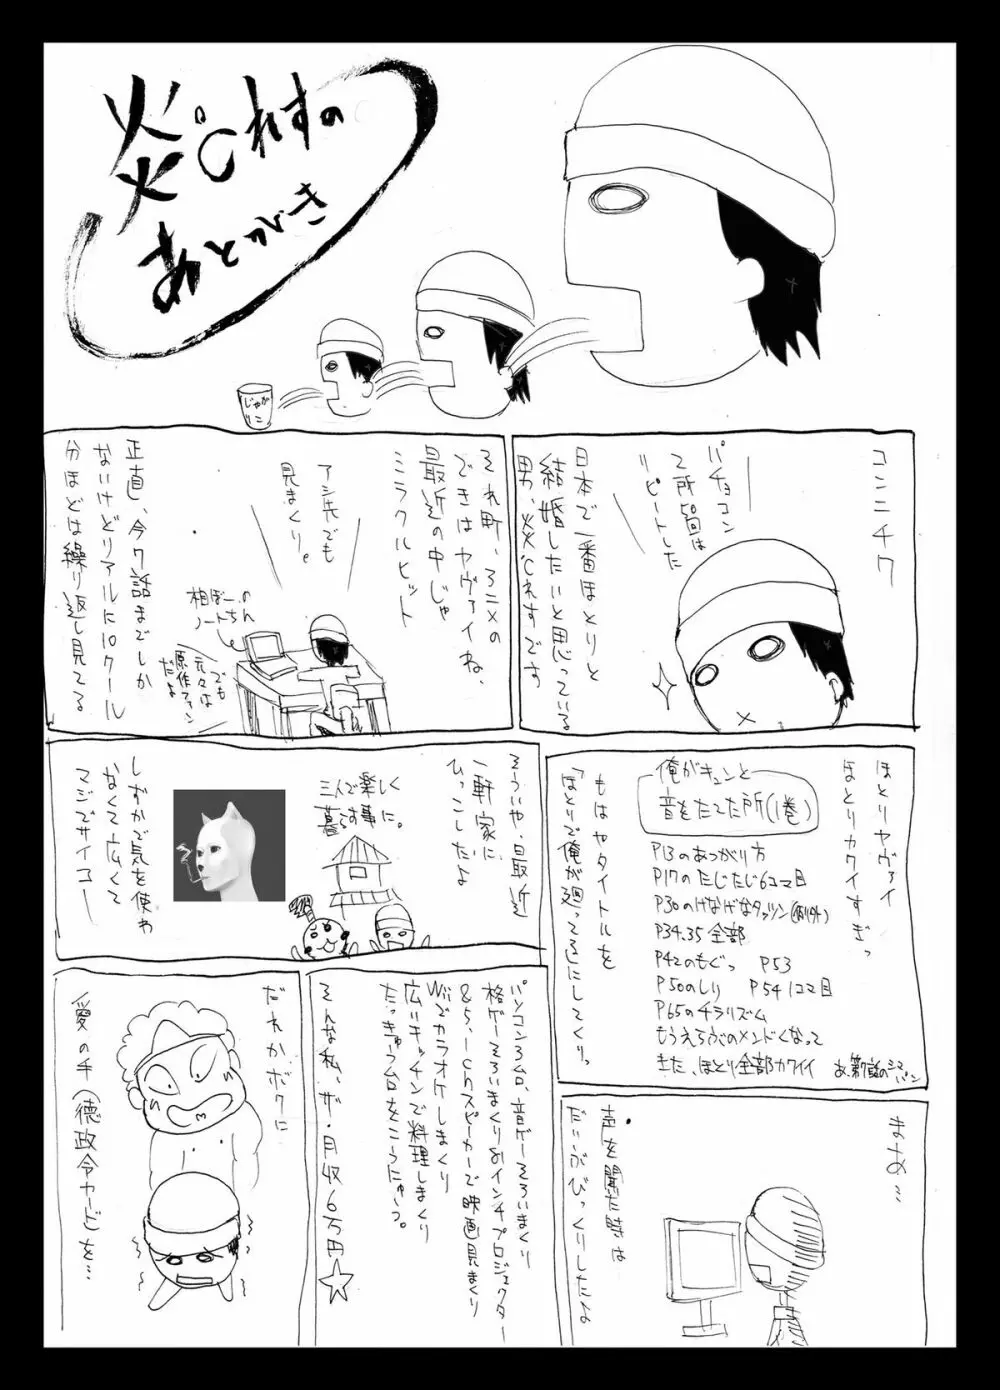 炎℃れすの
あとがき
じゃが
りこ
コンニチワ
パチョコン
2所50回は
リピートした
日本で一番ほとりと
結婚したいと思っている
男、炎℃れすです
それ町、アニメの
できはヤヴァイね、
最近の中じゃ
ミラクルヒット
アシ先でも
見まくり。
相ぼーの
ノートちん
でも
元々は
原作ファン
だよ
正直、今7話までしか
ないけどリアルに10クール
分ほどは繰り返し見てる
ほとりヤヴァイ
ほとりカワイすぎっ
俺がキュンと
音をたてた所(1巻)
P13のあつがり方
P17のたじたじ6コマ目
P30のけなげなタッツン(例外)
P34.35 全部
P42のもぐっ P53
P50のしり P54 1コマ目
P65のチラリズム
もうえらぶのメンドくなって
きた、ほとり全部カワイイ
もはやタイトルを
「ほとりで俺が廻ってる」にしてくりっ
そういや、最近
一軒家に、
ひっこしたよ
三人で楽しく
暮らす事に。
しずかで気を使わ
なくて広くて
マジでサイコー
まあ…
声を聞た時は
だいぶびっくりしたな
パソコン3台、音ゲーそろいまくり
格ゲーそろいまくり80インチプロジェクター
&5.1chスピーカーで映画見まくり
Wiiでカラオケしまくり
広いキッチンで料理しまくり
たっきゅう台をこうにゅうっ。
そんな私、ザ・月収6万円☆
だれかボクに
愛の手(徳政令カードを…